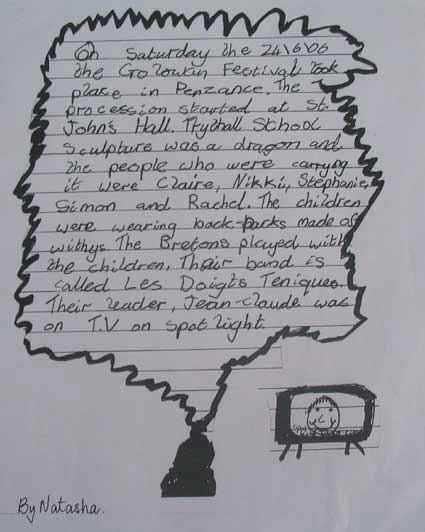 On Saturday the 24/6/06
the Golowan Festival took
place in Penzance. The
procession started at St.
John's Hall. Trythall School
Sculpture was a dragon and
the people who were carrying
it were Claire, Nikki, Stephanie,
Simon and Rachel. The children
were wearing back-packs made of
withys. The Bretons played with
the children. Their band is
called Les Doigts Teniques.
Their leader, Jean-Claude was
on T.V on spotlight.
By Natasha.